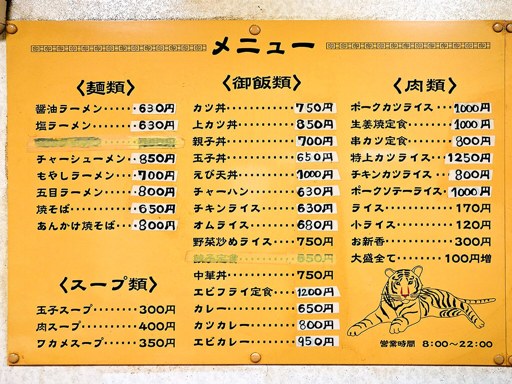 メニュー
〈麺類〉
醤油ラーメン・・・・・630円
塩ラーメン・・・・・・630円
チャーシューメン・850円
もやしラーメン・・・700円
五目ラーメン・・・・800円
焼そば・・・・・・・・・650円
あんかけ焼そば・・800円
〈スープ類〉
玉子スープ・・・・・・・300円
肉スープ・・・・・・・・400円
ワカメスープ・・・・・350円
〈御飯類〉
カツ丼・・・・・・・・・・750円
上カツ丼・・・・・・・・850円
親子丼・・・・・・・・・・700円
玉子丼・・・・・・・・・・650円
えび天丼・・・・・・・・1000円
チャーハン・・・・・・・630円
チキンライス・・・・・630円
オムライス・・・・・・・680円
野菜炒めライス・・・750円
中華丼・・・・・・・・・・750円
エビフライ定食・・・1200円
カレー・・・・・・・・・・650円
カツカレー・・・・・・・800円
エビカレー・・・・・・・950円
〈肉類〉
ポークカツライス・・1000円
生姜焼定食・・・・・・・1000円
串カツ定食・・・・・・・800円
特上カツライス・・・1250円
チキンカツライス・・800円
ポークソテーライス・1000円
ライス・・・・・・・・・・170円
小ライス・・・・・・・・120円
お新香・・・・・・・・・・300円
大盛全て・・・・・・・・100円増
営業時間 8:00〜22:00